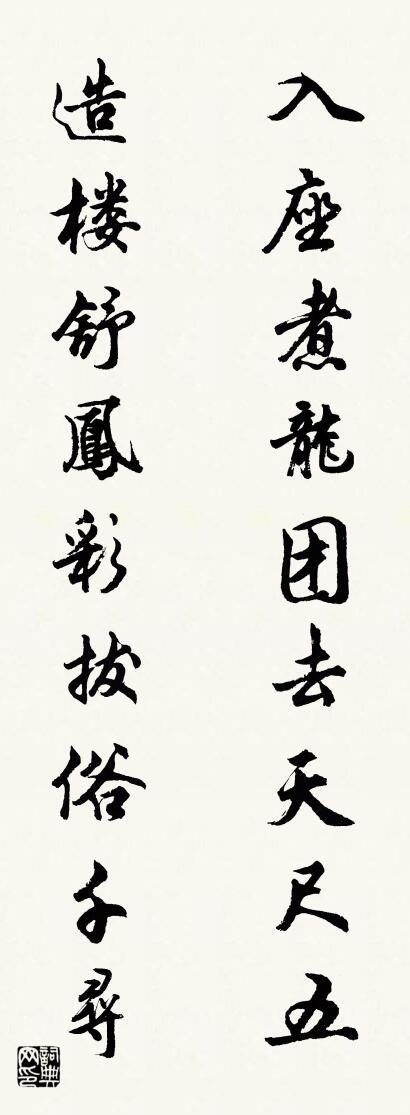 入座煮龍团去天尺五
造楼舒鳳彩拔俗千尋
詞典网印